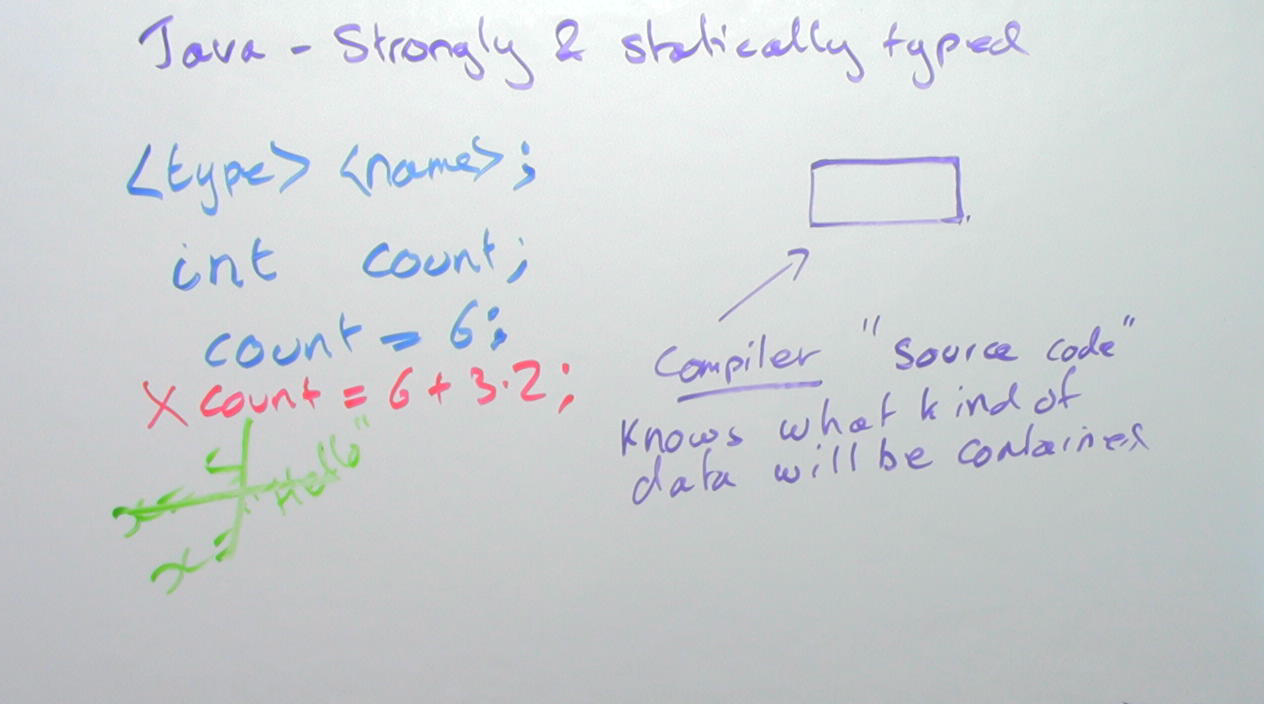 Java - Strongly & statically typed
<type> <name>;
int count;
count = 6;
X count = 6 + 3.2;
"Hello"
Compiler "source code"
knows what kind of
data will be contained